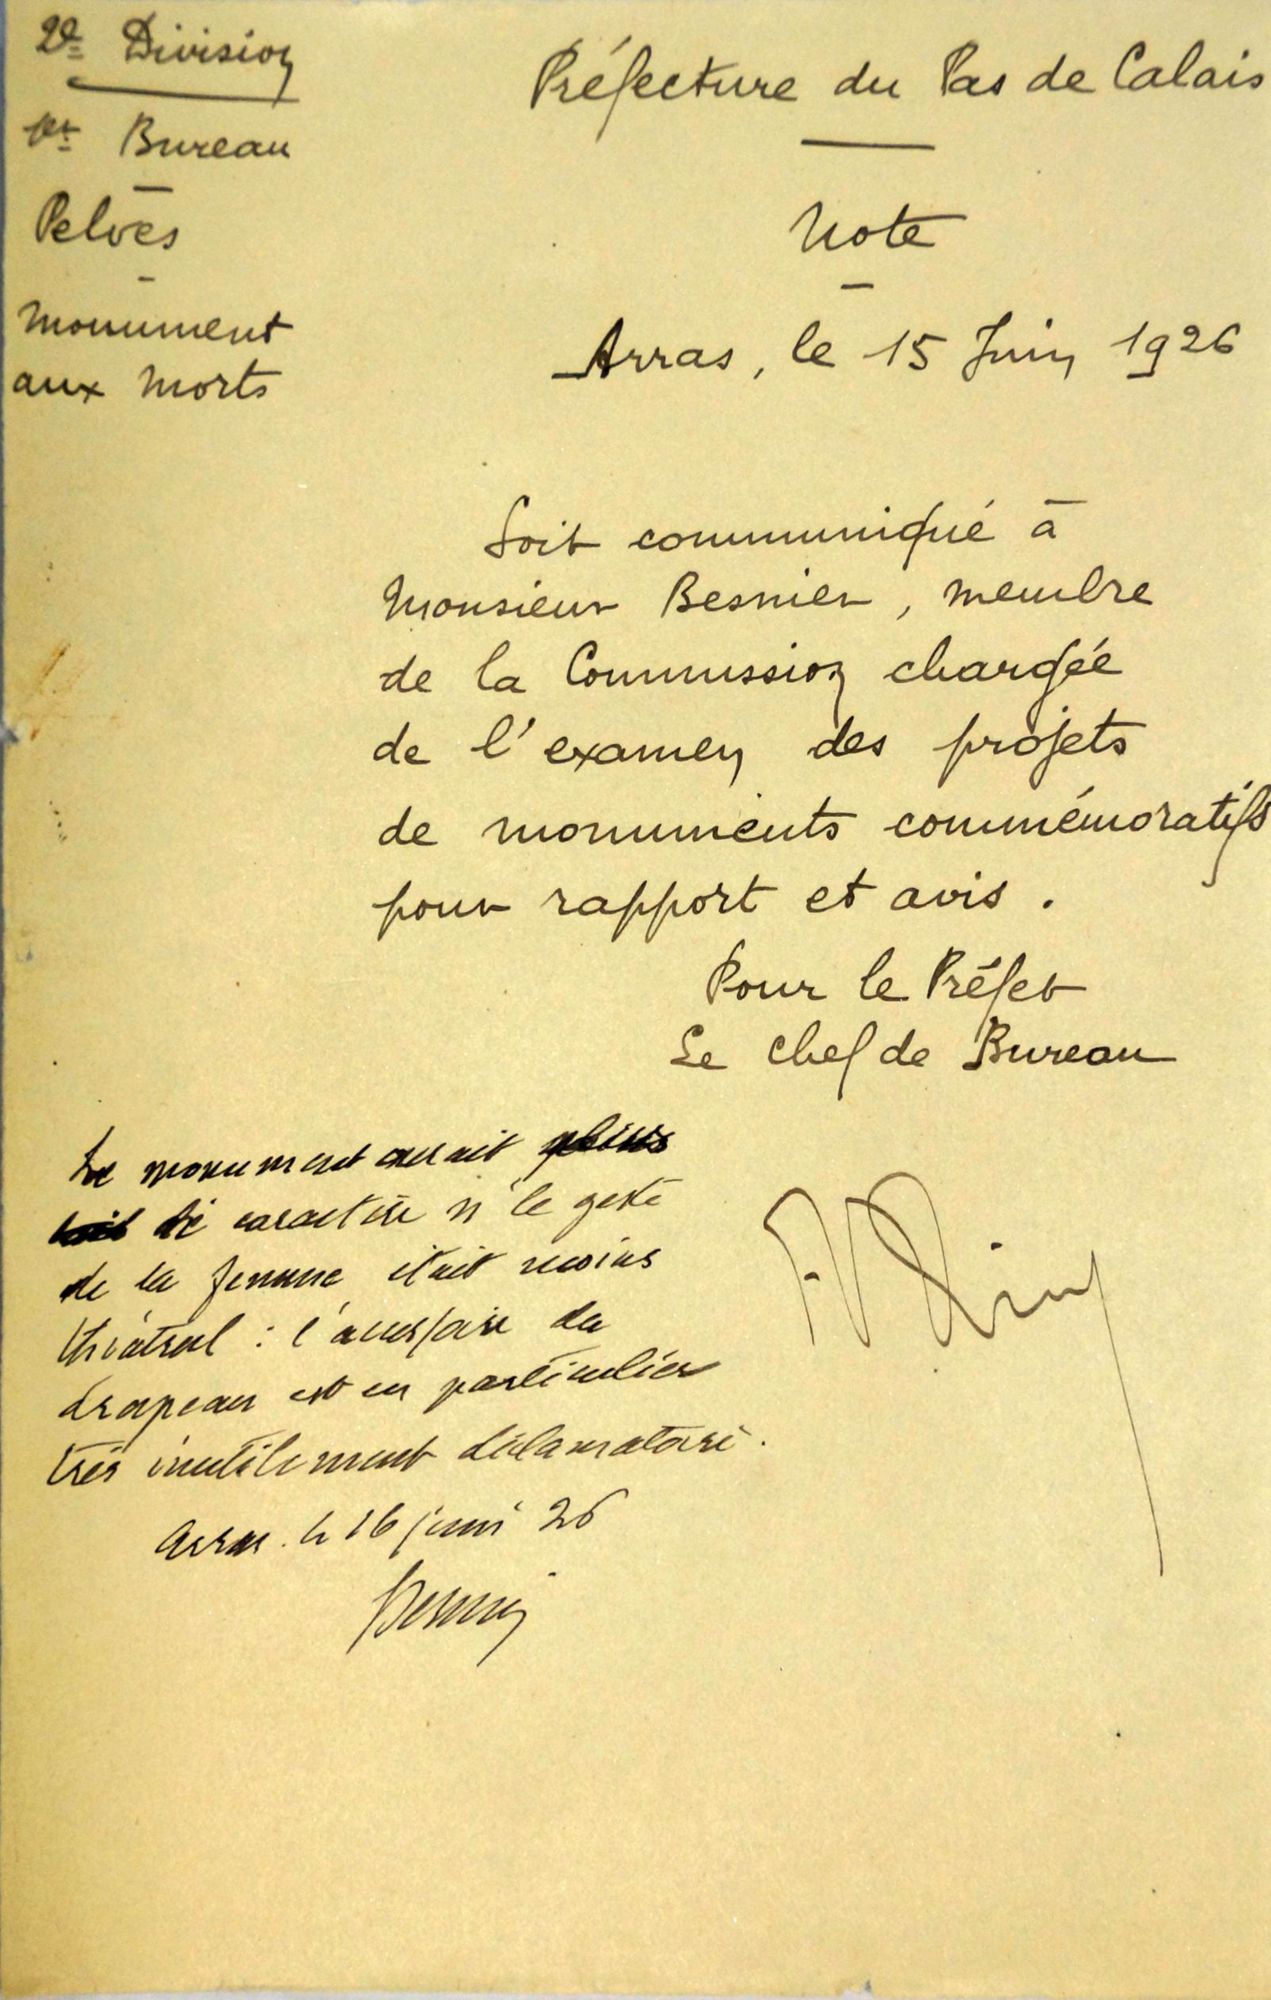 2e Division
1er Bureau
Pelves
Monument
aux Morts
Préfecture du Pas de Calais
Note
Arras, le 15 Juin 1926
Soit communiqué à
Monsieur Besnier, membre
de la Commission chargée
de l'examen des projets
de monuments commémoratifs
pour rapport et avis.
Pour le Préfet
Le Chef de Bureau
Le monument aurait plus
de caractère si le geste
de la femme était moins
théâtral : l'accessoire du
drapeau est en particulier
très inutilement déclamatoire.
Arras. le 16 juin 26
Besnier